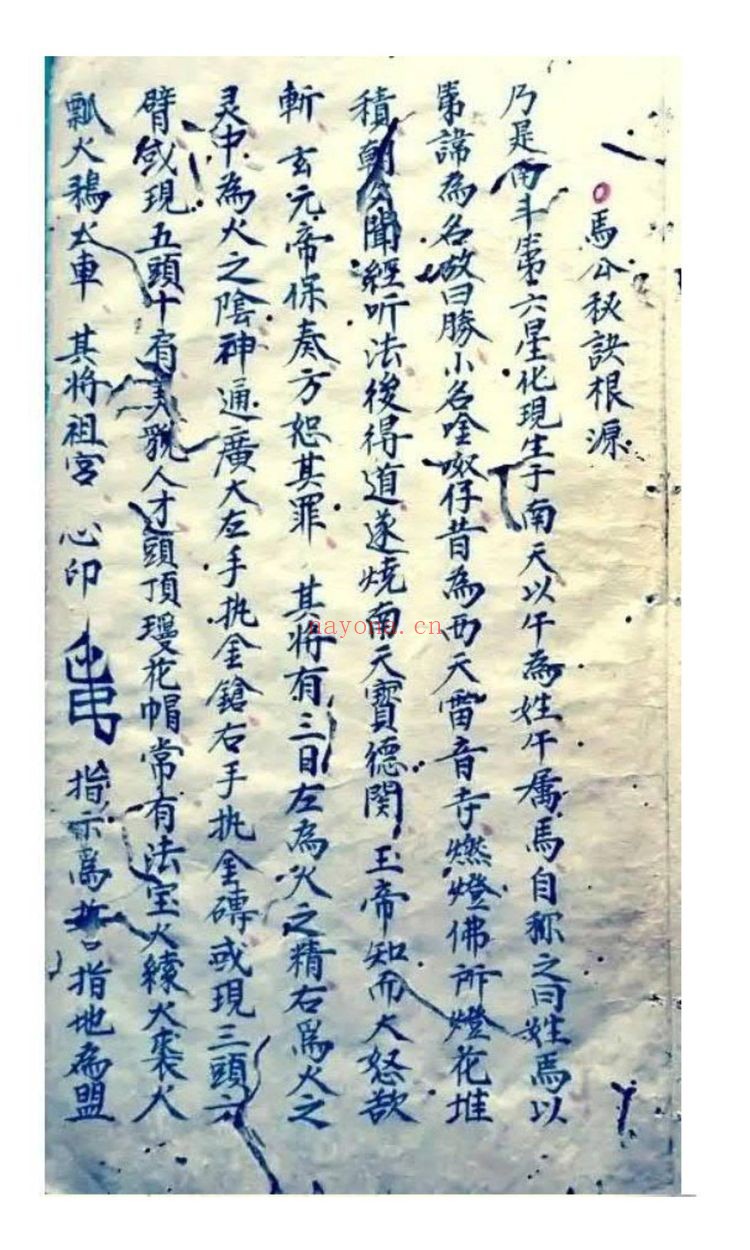 馬公秘訣根源
乃是南斗第六星化現生于南天以午為姓午属馬自称之曰姓馬以
第諱為名故曰勝小名唫㖠仔昔為西天雷音寺燃燈佛所燈花堆
積朝夕聞經听法後得道遂燒南天寶德関玉帝知而大怒欲
斬 玄元帝保奏方恕其罪 其将有三目左為火之精右爲火之
灵中為火之陰神通廣大左手执金鎗右手执金磚或現三頭六
臂或現五頭十有美貌人才頭頂瓊花帽常有法宝火縤火袭火
瓢火鴉火車 其将祖宫 心印 指示爲誓口指地為盟
nayona.cn